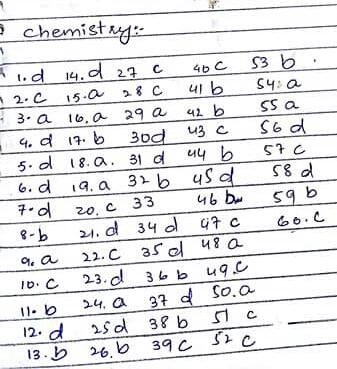 Chemistry:-
1. d 14. d 27 c 40 c 53 b .
2. c 15. a 28 c 41 b 54. a
3. a 16. a 29 a 42 b 55 a
4. d 17. b 30 d 43 c 56 d
5. d 18. a. 31 d 44 b 57 c
6. d 19. a 32 b 45 d 58 d
7. d 20. c 33 46 b 59 b
8. b 21. d 34 d 47 c 60. c
9. a 22. c 35 d 48 a
10. c 23. d 36 b 49. c
11. b 24. a 37 d 50. a
12. d 25 d 38 b 51 c
13. b 26. b 39 c 52 c